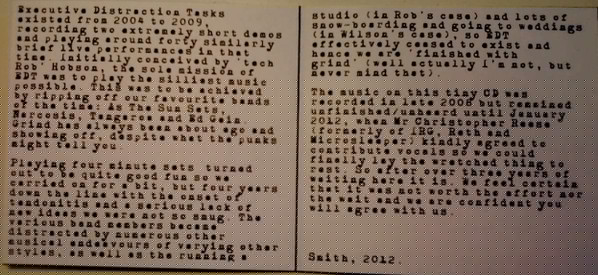 Executive Distraction Tasks
existed from 2004 to 2009,
recording two extremely short demos
and playing around forty similarly
brief live performances in that
time. Initially conceived by 'tech
Rob' Hobson, the sole mission of
EDT was to play the silliest music
possible. This was to be achieved
by ripping off our favourite bands
of the time: As The Sun Sets,
Narcosis, Tangaroa and Ed Gein.
Grind has always been about ego and
showing off, despite what the punks
might tell you.
Playing four minute sets turned
out to be quite good fun so we
carried on for a bit, but four years
down the line with the onset of
tendonitis and a serious lack of
new ideas we were not so smug. The
various band members became
distracted by numerous other
musical endeavours of varying other
styles, as well as the running a
studio (in Rob's case) and lots of
snow-boarding and going to weddings
(in Wilson's case), so EDT
effectively ceased to exist and
hence we are 'finished with
grind' (well actually I'm not, but
never mind that).
The music on this tiny CD was
recorded in late 2008 but remained
unfinished/unheard until January
2012, when Mr Christopher Reese
(formerly of LRG, Reth and
Microsleeper) kindly agreed to
contribute vocals so we could
finally lay the wretched thing to
rest. So after over three years of
waiting here it is. We feel certain
that it was not worth the effort nor
the wait and we are confident you
will agree with us.
Smith, 2012.